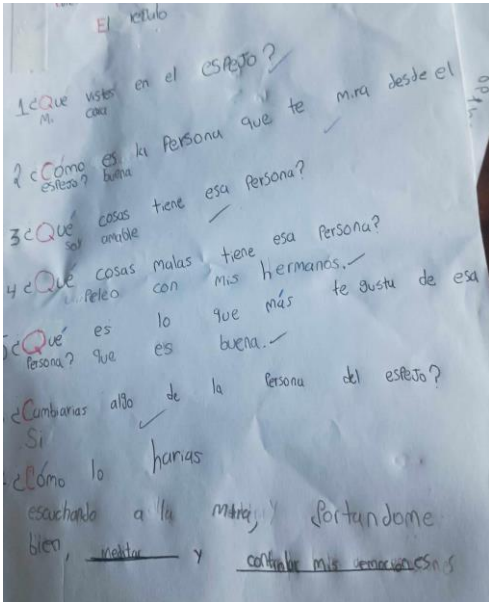 El
1¿Que vistes en el espejo?
Mi cara
2 ¿Cómo es la Persona que te mira desde el
espejo? buena
3 ¿Qué cosas tiene esa Persona?
ser amable
4 ¿Qué cosas malas tiene esa Persona?
Peleo con mis hermanos.
5 ¿Qué es lo que más te gusta de esa
Persona? que es buena.
¿Cambiarias algo de la Persona del espeJo?
Si
¿Cómo lo harias
escuchando a la y Portandome
bien, meditar y controlar mis